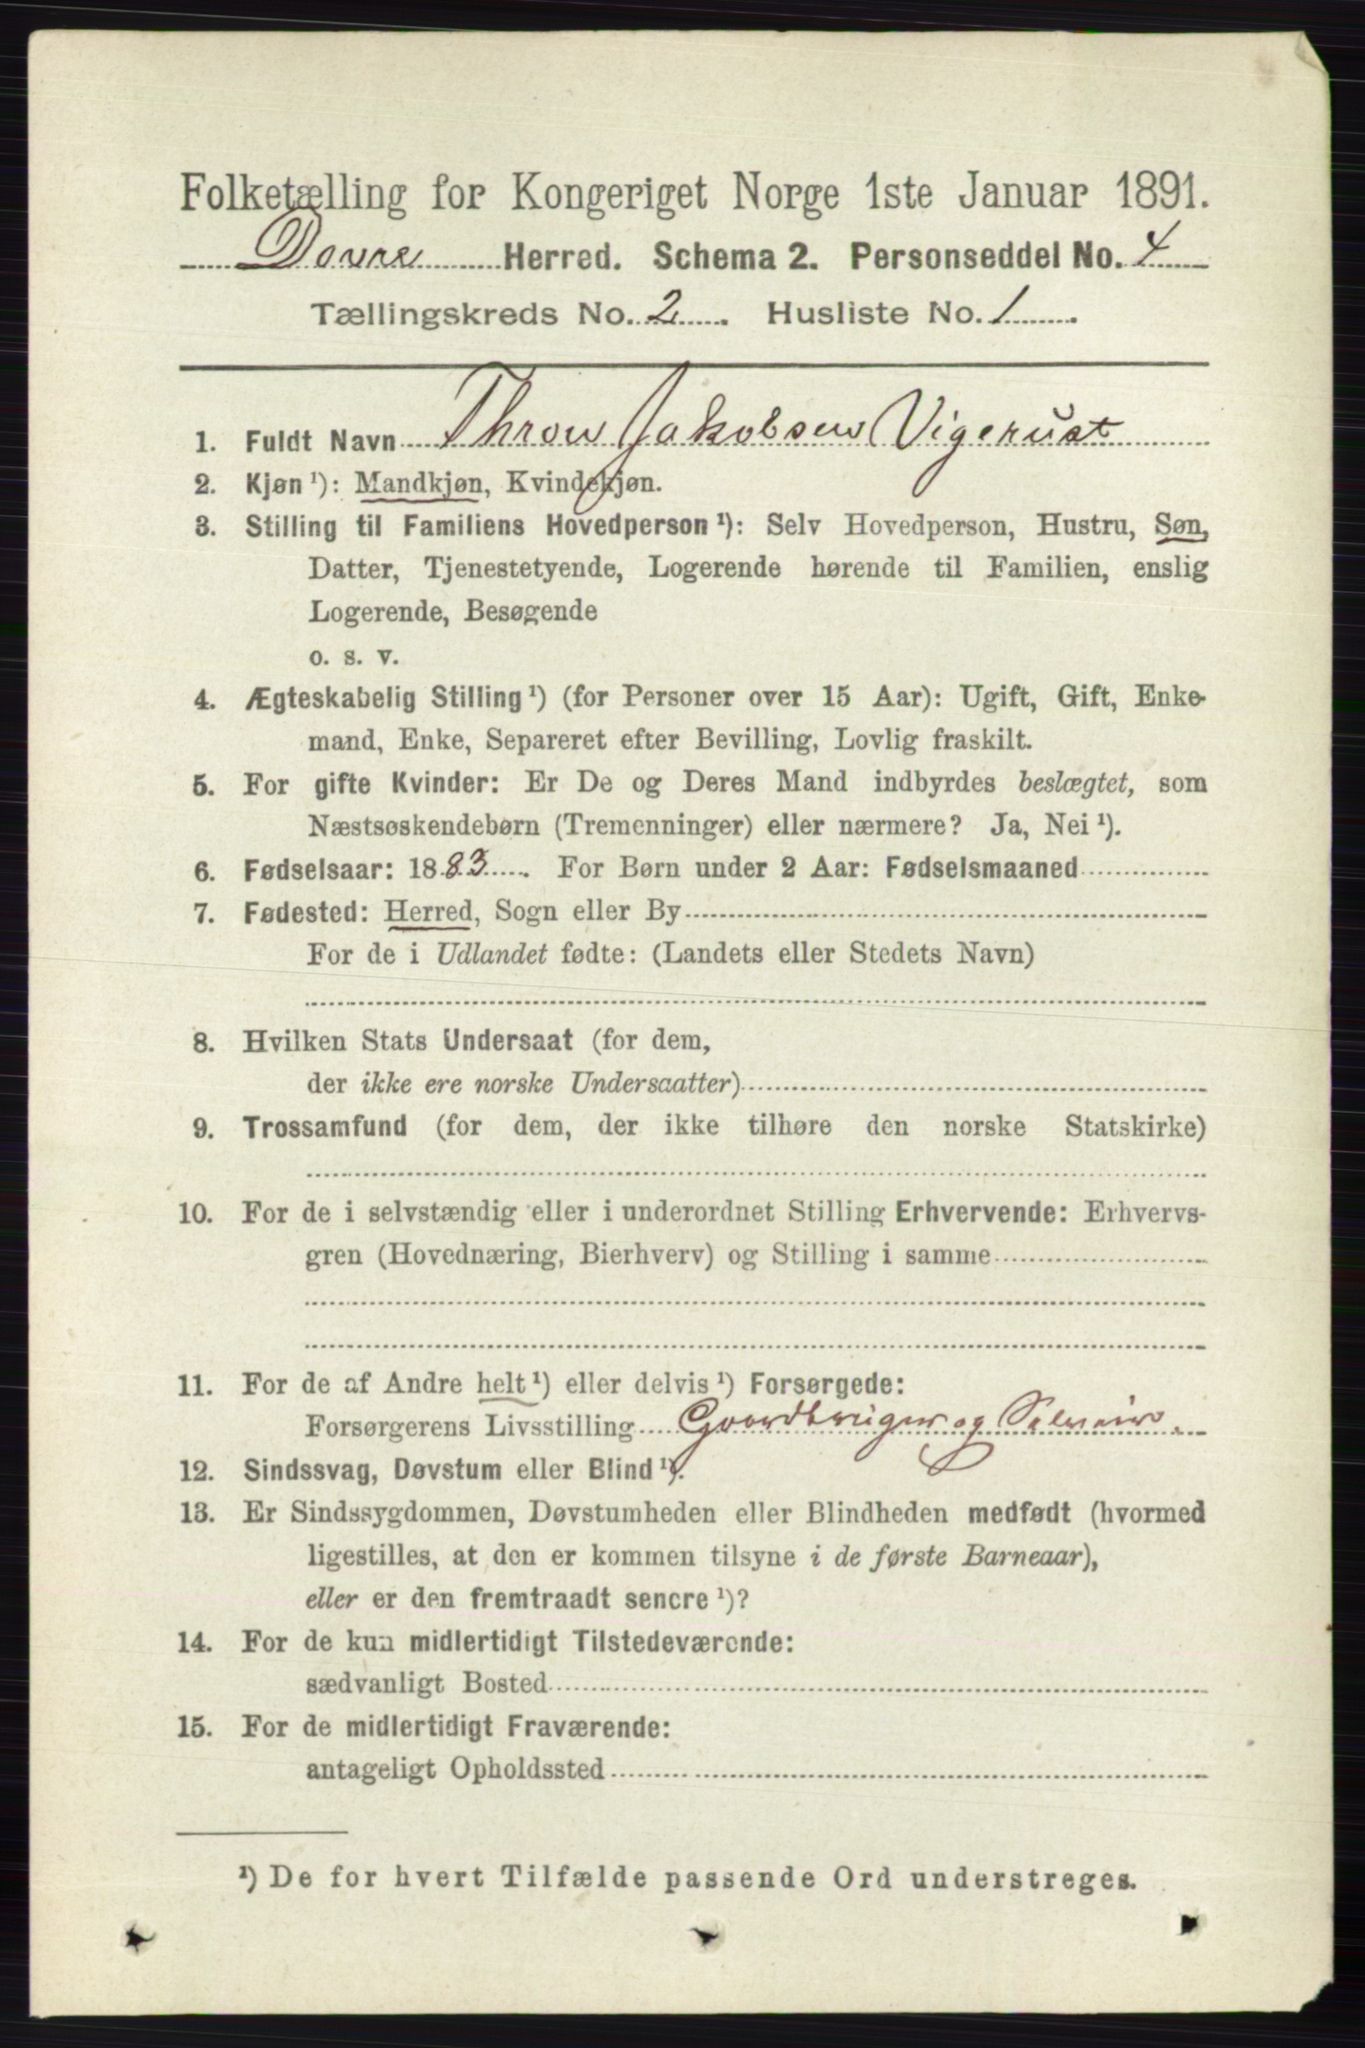 Folketælling for Kongeriget Norge 1ste Januar 1891.
Dovre Herred. Schema 2. Personseddel No. 4
Tællingskreds No. 2. Husliste No. 1.
1. Fuldt Navn Thron Jakobsen Vigerust
2. Kjøn ¹): Mandkjøn, Kvindekjøn.
3. Stilling til Familiens Hovedperson ¹): Selv Hovedperson, Hustru, Søn,
Datter, Tjenestetyende, Logerende hørende til Familien, enslig
Logerende, Besøgende
o. s. v.
4. Ægteskabelig Stilling ¹) (for Personer over 15 Aar): Ugift, Gift, Enke-
mand, Enke, Separeret efter Bevilling, Lovlig fraskilt.
5. For gifte Kvinder: Er De og Deres Mand indbyrdes beslægtet, som
Næstsøskendebørn (Tremenninger) eller nærmere? Ja, Nei ¹).
6. Fødselsaar: 1883. For Børn under 2 Aar: Fødselsmaaned
7. Fødested: Herred, Sogn eller By
For de i Udlandet fødte: (Landets eller Stedets Navn)
8. Hvilken Stats Undersaat (for dem,
der ikke ere norske Undersaatter)
9. Trossamfund (for dem, der ikke tilhøre den norske Statskirke)
10. For de i selvstændig eller i underordnet Stilling Erhvervende: Erhvervs-
gren (Hovednæring, Bierhverv) og Stilling i samme
11. For de af Andre helt ¹) eller delvis ¹) Forsørgede:
Forsørgerens Livsstilling Gaardbruger og Selveier.
12. Sindssvag, Døvstum eller Blind ¹).
13. Er Sindssygdommen, Døvstumheden eller Blindheden medfødt (hvormed
ligestilles, at den er kommen tilsyne i de første Barneaar),
eller er den fremtraadt senere ¹)?
14. For de kun midlertidigt Tilstedeværende:
sædvanligt Bosted
15. For de midlertidigt Fraværende:
antageligt Opholdssted
¹) De for hvert Tilfælde passende Ord understreges.